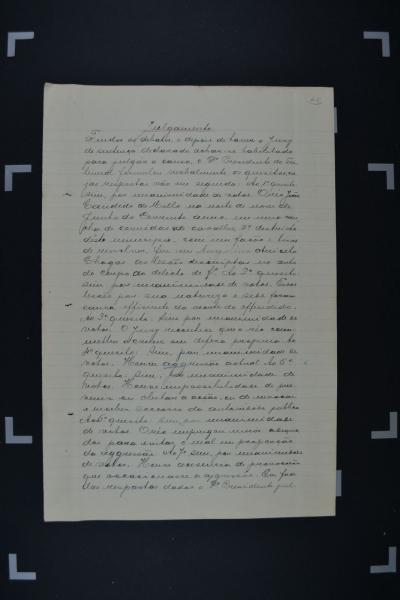 Julgamento
Findos os debates, e depois de haver o Jury
de sentença declarado achar-se habilitado
para julgar a causa, o Dr. Presidente do Tri
bunal formulou verbalmente os quesitos cu
jas respostas vão em seguida. Ao 1º quesito
Sim, por unanimidade de votos. O réo João
Candido de Mello na noite de nove de
Junho do corrente anno, em uma can
cha de corridas de cavallos, 2º districto
deste municipio, com um facão e
de revolver, fez em
Chagas as lesões descriptas no auto
de corpo de delicto de fs. Ao 2º quesito:
sim por unanimidade de votos. Essas
lesões por sua natureza e séde foram
causa efficiente da morte do offendido.
Ao 3º quesito: Sim por unanimidade de
votos. O Jury reconhece que o réo com
metteu o crime em defeza propria. Ao
4º quesito: Sim, por unanimidade de
votos. Houve aggressão actual. Ao 5º
quesito: Sim, por unanimidade de
votos. Houve impossibilidade de pre
venir ou obstar a acção, ou de invocar
e receber soccorro da autoridade publica
Ao 6º quesito: Sim, por unanimidade
de votos. O réo empregou meios adequa
dos para evitar o mal em proporção
da aggressão. Ao 7º Sim, por unanimidade
de votos. Houve ausencia de provocação
que occasionasse a aggressão. Em face
das respostas dadas o Dr. Presidente jul